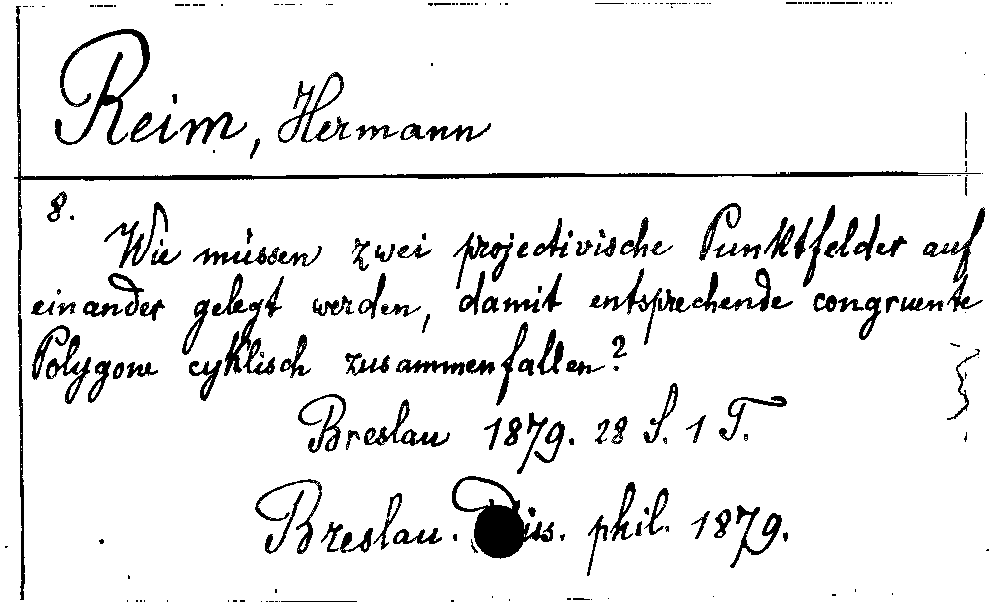 Reim, Hermann
8.
Wie müssen zwei projectivische Punktfelder auf
einander gelegt werden, damit entsprechende congruente
Polygone cyklisch zusammenfallen?
Breslau 1879. 28 S. 1 T.
Breslau. Diss. phil. 1879.